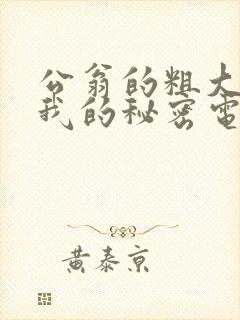 公翁的粗大
我的秘密電
黄泰京